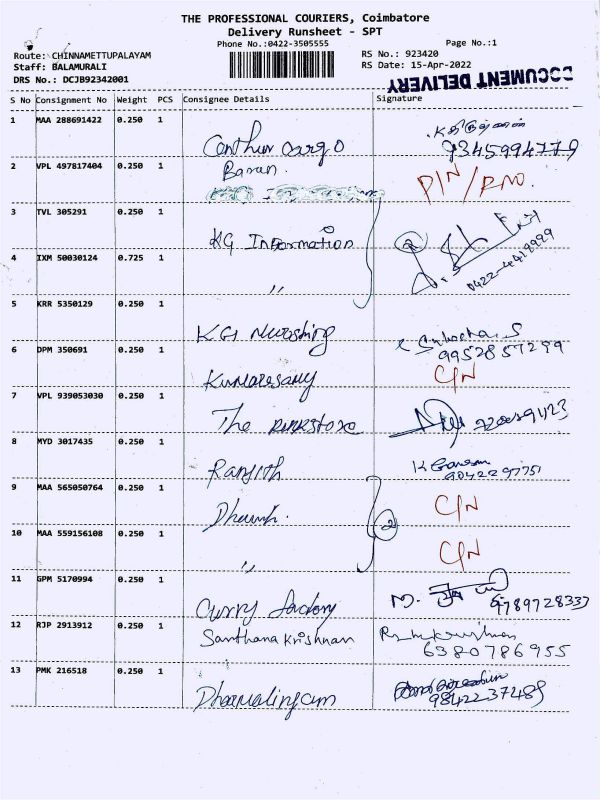 THE PROFESSIONAL COURIERS, Coimbatore
Delivery Runsheet - SPT
Phone No.:0422-3505555 Page No.:1
Route: CHINNAMETTUPALAYAM RS No.: 923420
Staff: BALAMURALI RS Date: 15-Apr-2022
DRS No.: DCJB92342001
DOCUMENT DELIVERY
S No Consignment No Weight PCS Consignee Details Signature
1 MAA 288691422 0.250 1
Cargo 9345994779
2 VPL 497817404 0.250 1 Baran. PIN/RNO.
3 TVL 305291 0.250 1
KG Information 2
4 IXM 50030124 0.725 1 0422-4419999
〃
5 KRR 5350129 0.250 1
KG S
6 DPM 350691 0.250 1 9952857299
Kumaresamy C/N
7 VPL 939053030 0.250 1
The
8 MYD 3017435 0.250 1
Ranjith K Ganesan
9042297751
9 MAA 565050764 0.250 1 C/N
2
10 MAA 559156108 0.250 1
〃 C/N
11 GPM 5170994 0.250 1
Curry factory M. 9789728337
12 RJP 2913912 0.250 1 Santhana Krishnan
6380786955
13 PMK 216518 0.250 1
Dharmalingam 9842237489